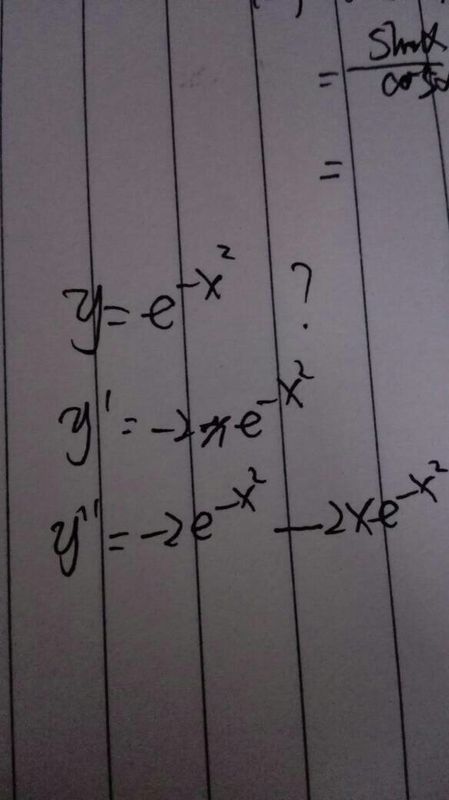 = sinα/cosα
=
y = e^{-x^2} ?
y' = -2xe^{-x^2}
y'' = -2e^{-x^2} - 2xe^{-x^2}